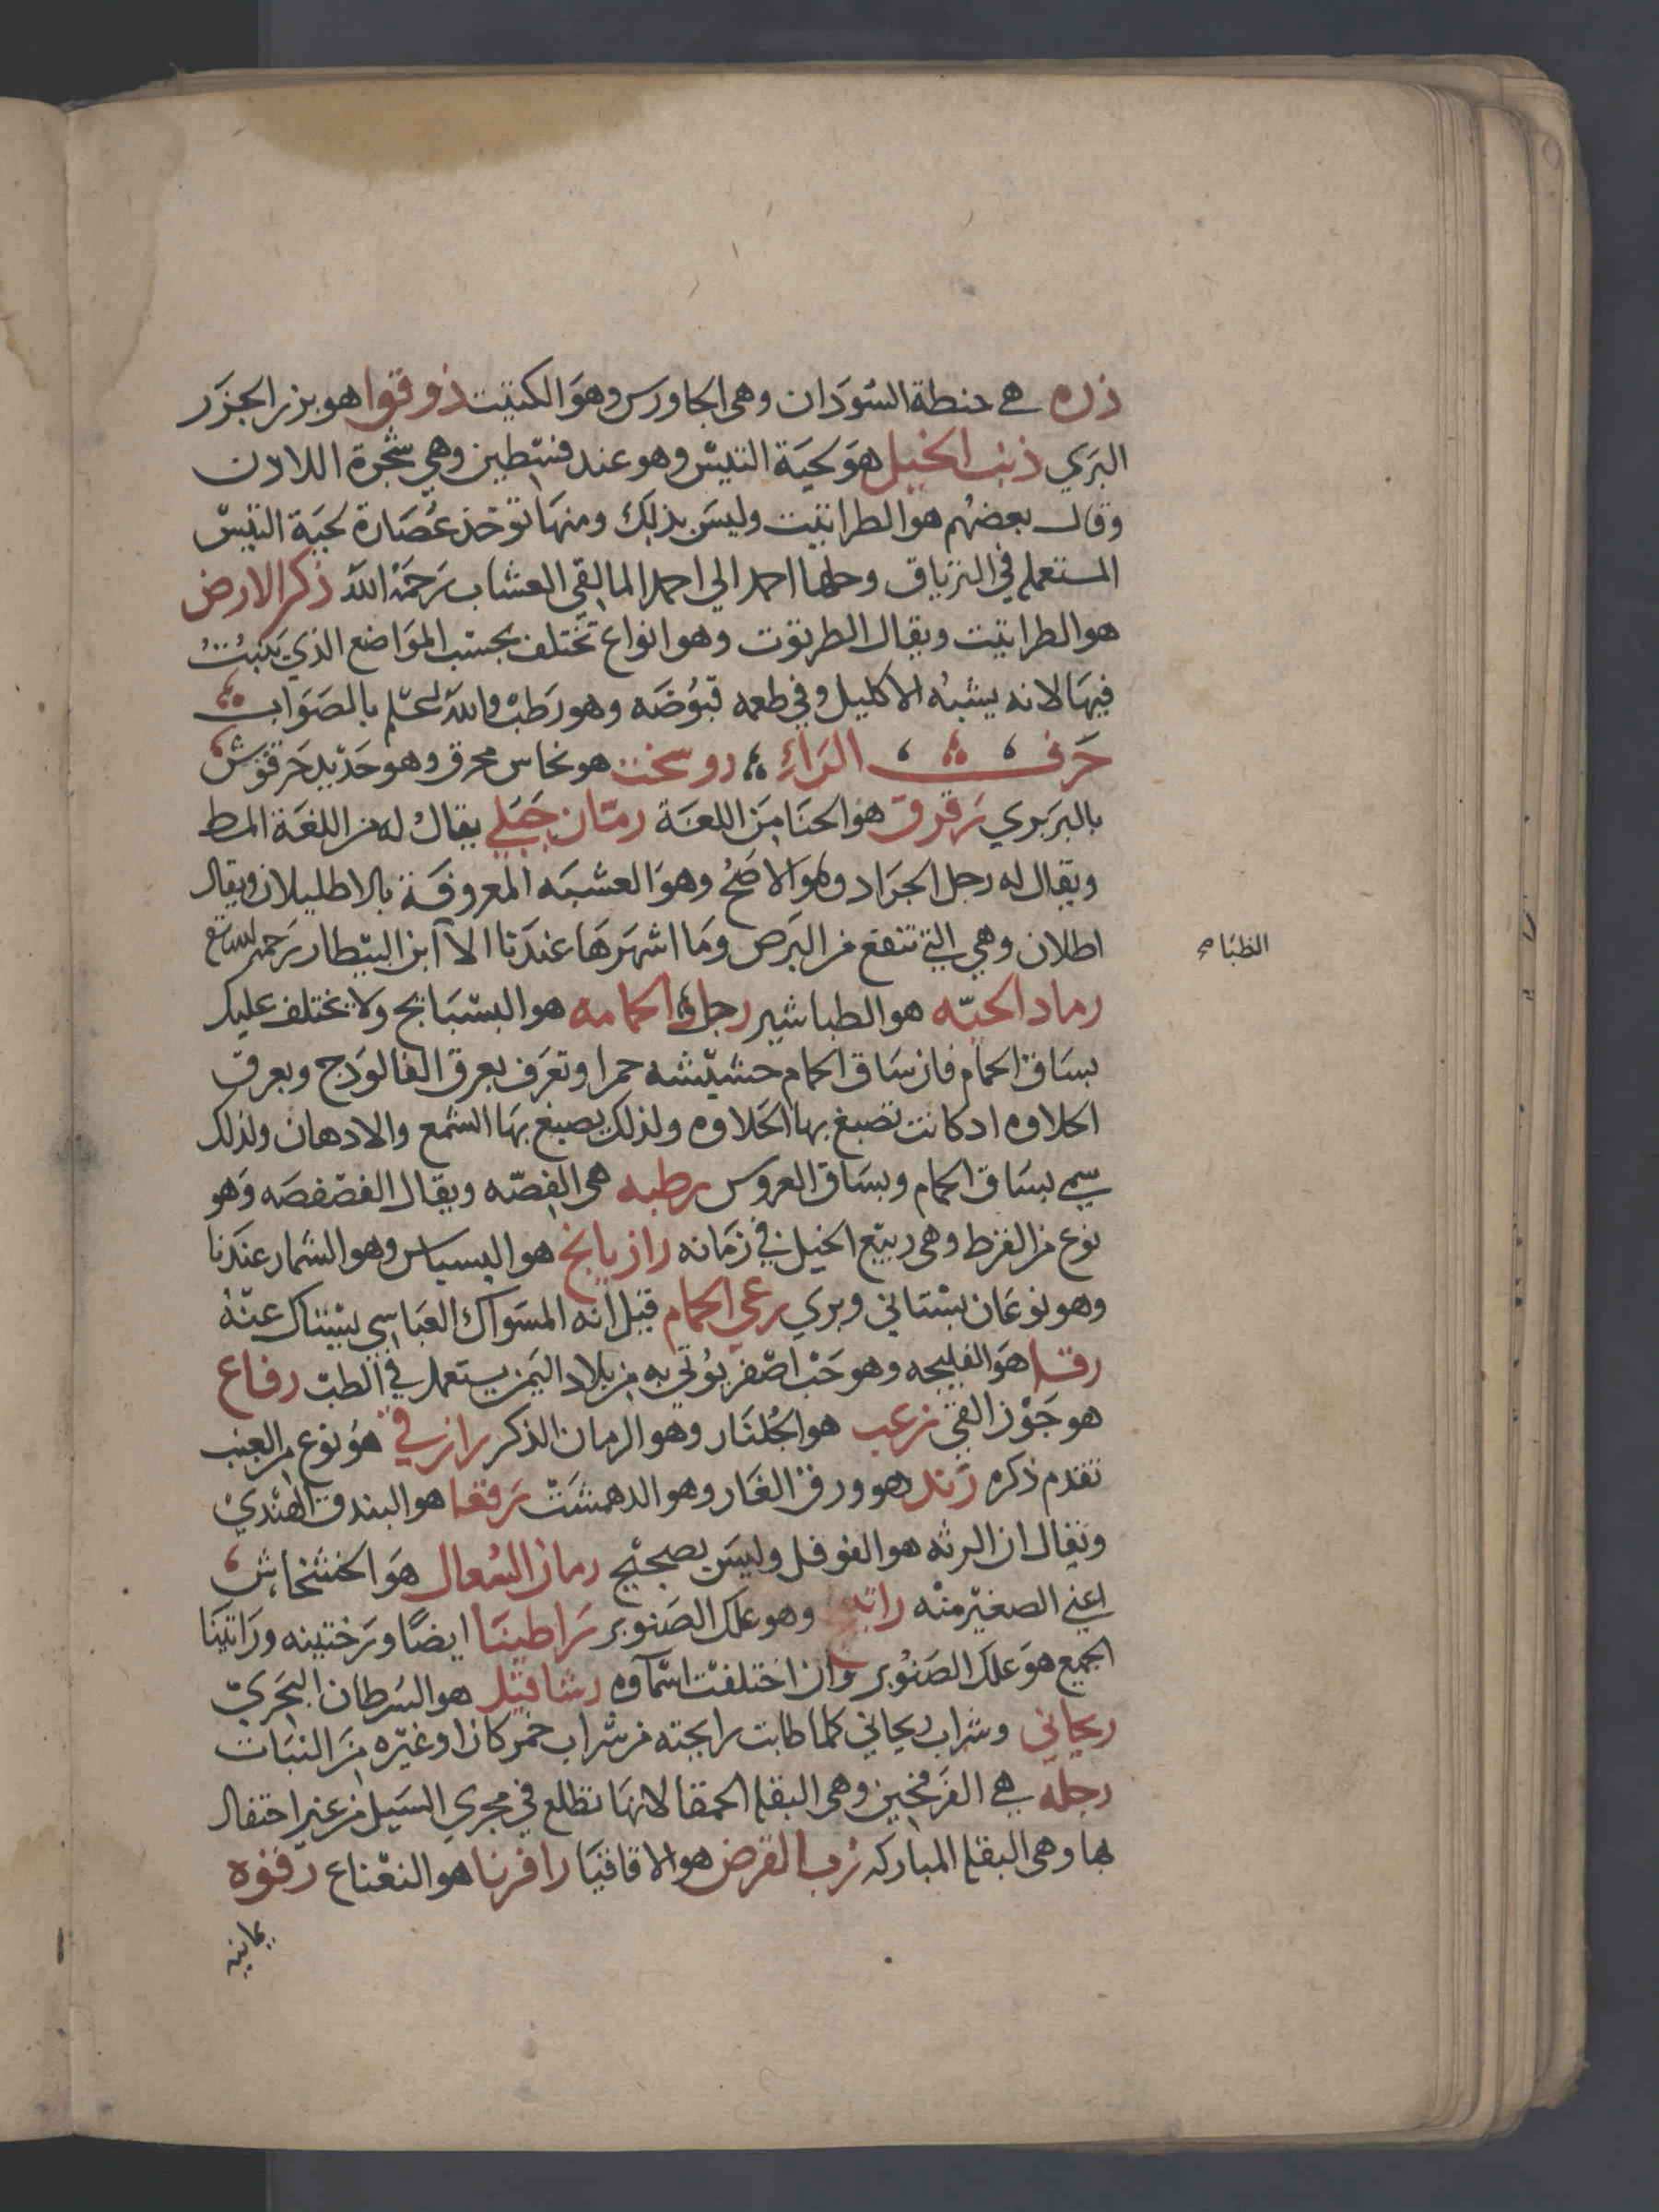 ذره هي حنطة السودان وهي الجاورس وهو الكنيت ذوقوا هو بزر الجزر
البري ذنب الخيل هو لحية التيس وهو عند فنطين وهي شجرة اللادن
وقال بعضهم هو الطراثيث وليس بذلك ومنها توخذ عصارة لحية التيس
المستعمله في الترياق وحلها احمد الي احمد المالقي العشاب رحمه الله ذكر الارض
هو الطراثيث ويقال الطرثوث وهو انواع تختلف بحسب المواضع الذي ينبت
فيها لانه يشبه الاكليل وفي طعمه قبوضه وهو رطب والله اعلم بالصواب
حرف الراء روسخت هو نحاس محرق وهو حديد حرقوش
بالبربري رقرق هو الحنا من اللغة رمان جبلي يقال له من اللغة المظ
ويقال له رجل الجراد وهو الاصح وهو العشبه المعروفة بالاطليلان ويقال
اطلان وهي التي تنفع من البرص وما اشهرها عندنا الا ابن البيطار رحمه الله تع
رماد الحيه هو الطباشير رجل الحمامه هو البسبايج ولا يختلف عليك
بساق الحمام فان ساق الحمام حشيشه حمرا وتعرف بعرق الفالوذج وبعرق
الحلاوه اد كانت تصبغ بها الحلاوه ولذلك يصبغ بها الشمع والادهان ولذلك
سمي بساق الحمام وبساق العروس رطبه هي الفصه ويقال الفصفصه وهو
نوع من القرط وهي ربيع الخيل في زمانه رازيانج هو البسباس وهو الشمار عندنا
وهو نوعان بستاني وبري رعي الحمام قيل انه المسواك العباسي يستاك عنه
رقــا هو الفليجه وهو حب اصفر يوتي به من بلاد اليمن يستعمل في الطب رقاع
هو جوز القي زعب هو الجلنار وهو الرمان الذكر رازقي هو نوع من العنب
تقدم ذكره رند هو ورق الغار وهو الدهمشت رقعا هو البندق الهندي
ويقال ان الرته هو الفوفل وليس بصحيح رمان السعال هو الخشخاش
اعني الصغير منه راتنج وهو علك الصنوبر راطينا ايضا ورختينه وراتينا
الجميع هو علك الصنوبر وان اختلفت اسماوه رشاقيل هو السرطان البحري
ريحاني وشراب ريحاني كلما طابت رايحته من شراب خمر كان او غيره من النبات
رجله هي الفرفخين وهي البقله الحمقا لانها تطلع في مجري السيل من غير احتفال
بها وهي البقله المباركه رب القرض هو الاقاقيا رافرنا هو النعناع رقوه
يمانيه
الطباء